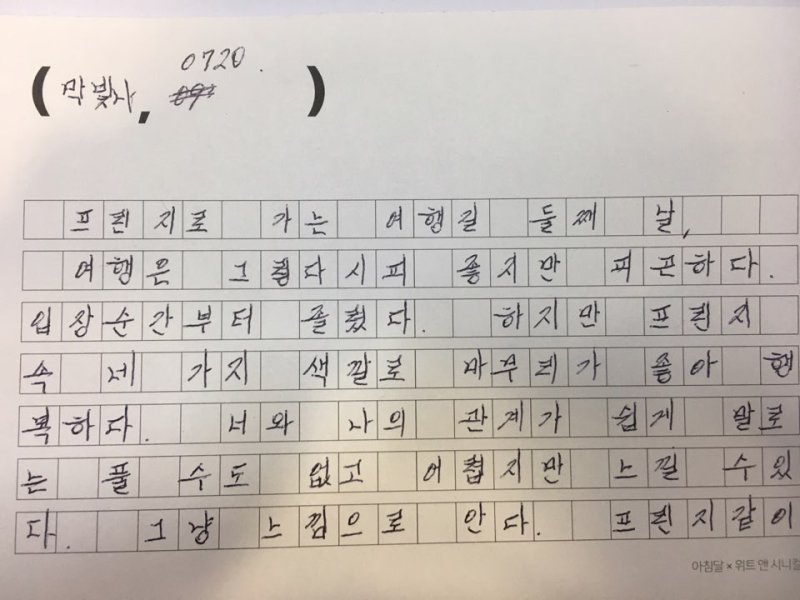 ( 막빛사, 0720. )
프린지로 가는 여행길 둘째 날,
여행은 그렇다시피 좋지만 피곤하다.
입장순간부터 졸렸다. 하지만 프린지
속 네 가지 색깔로 마무리가 좋아 행
복하다. 너와 나의 관계가 쉽게 말로
는 풀 수도 없고 어렵지만 느낄 수 있
다. 그냥 느낌으로 안다. 프린지같이
아침달 × 위트 앤 시니컬